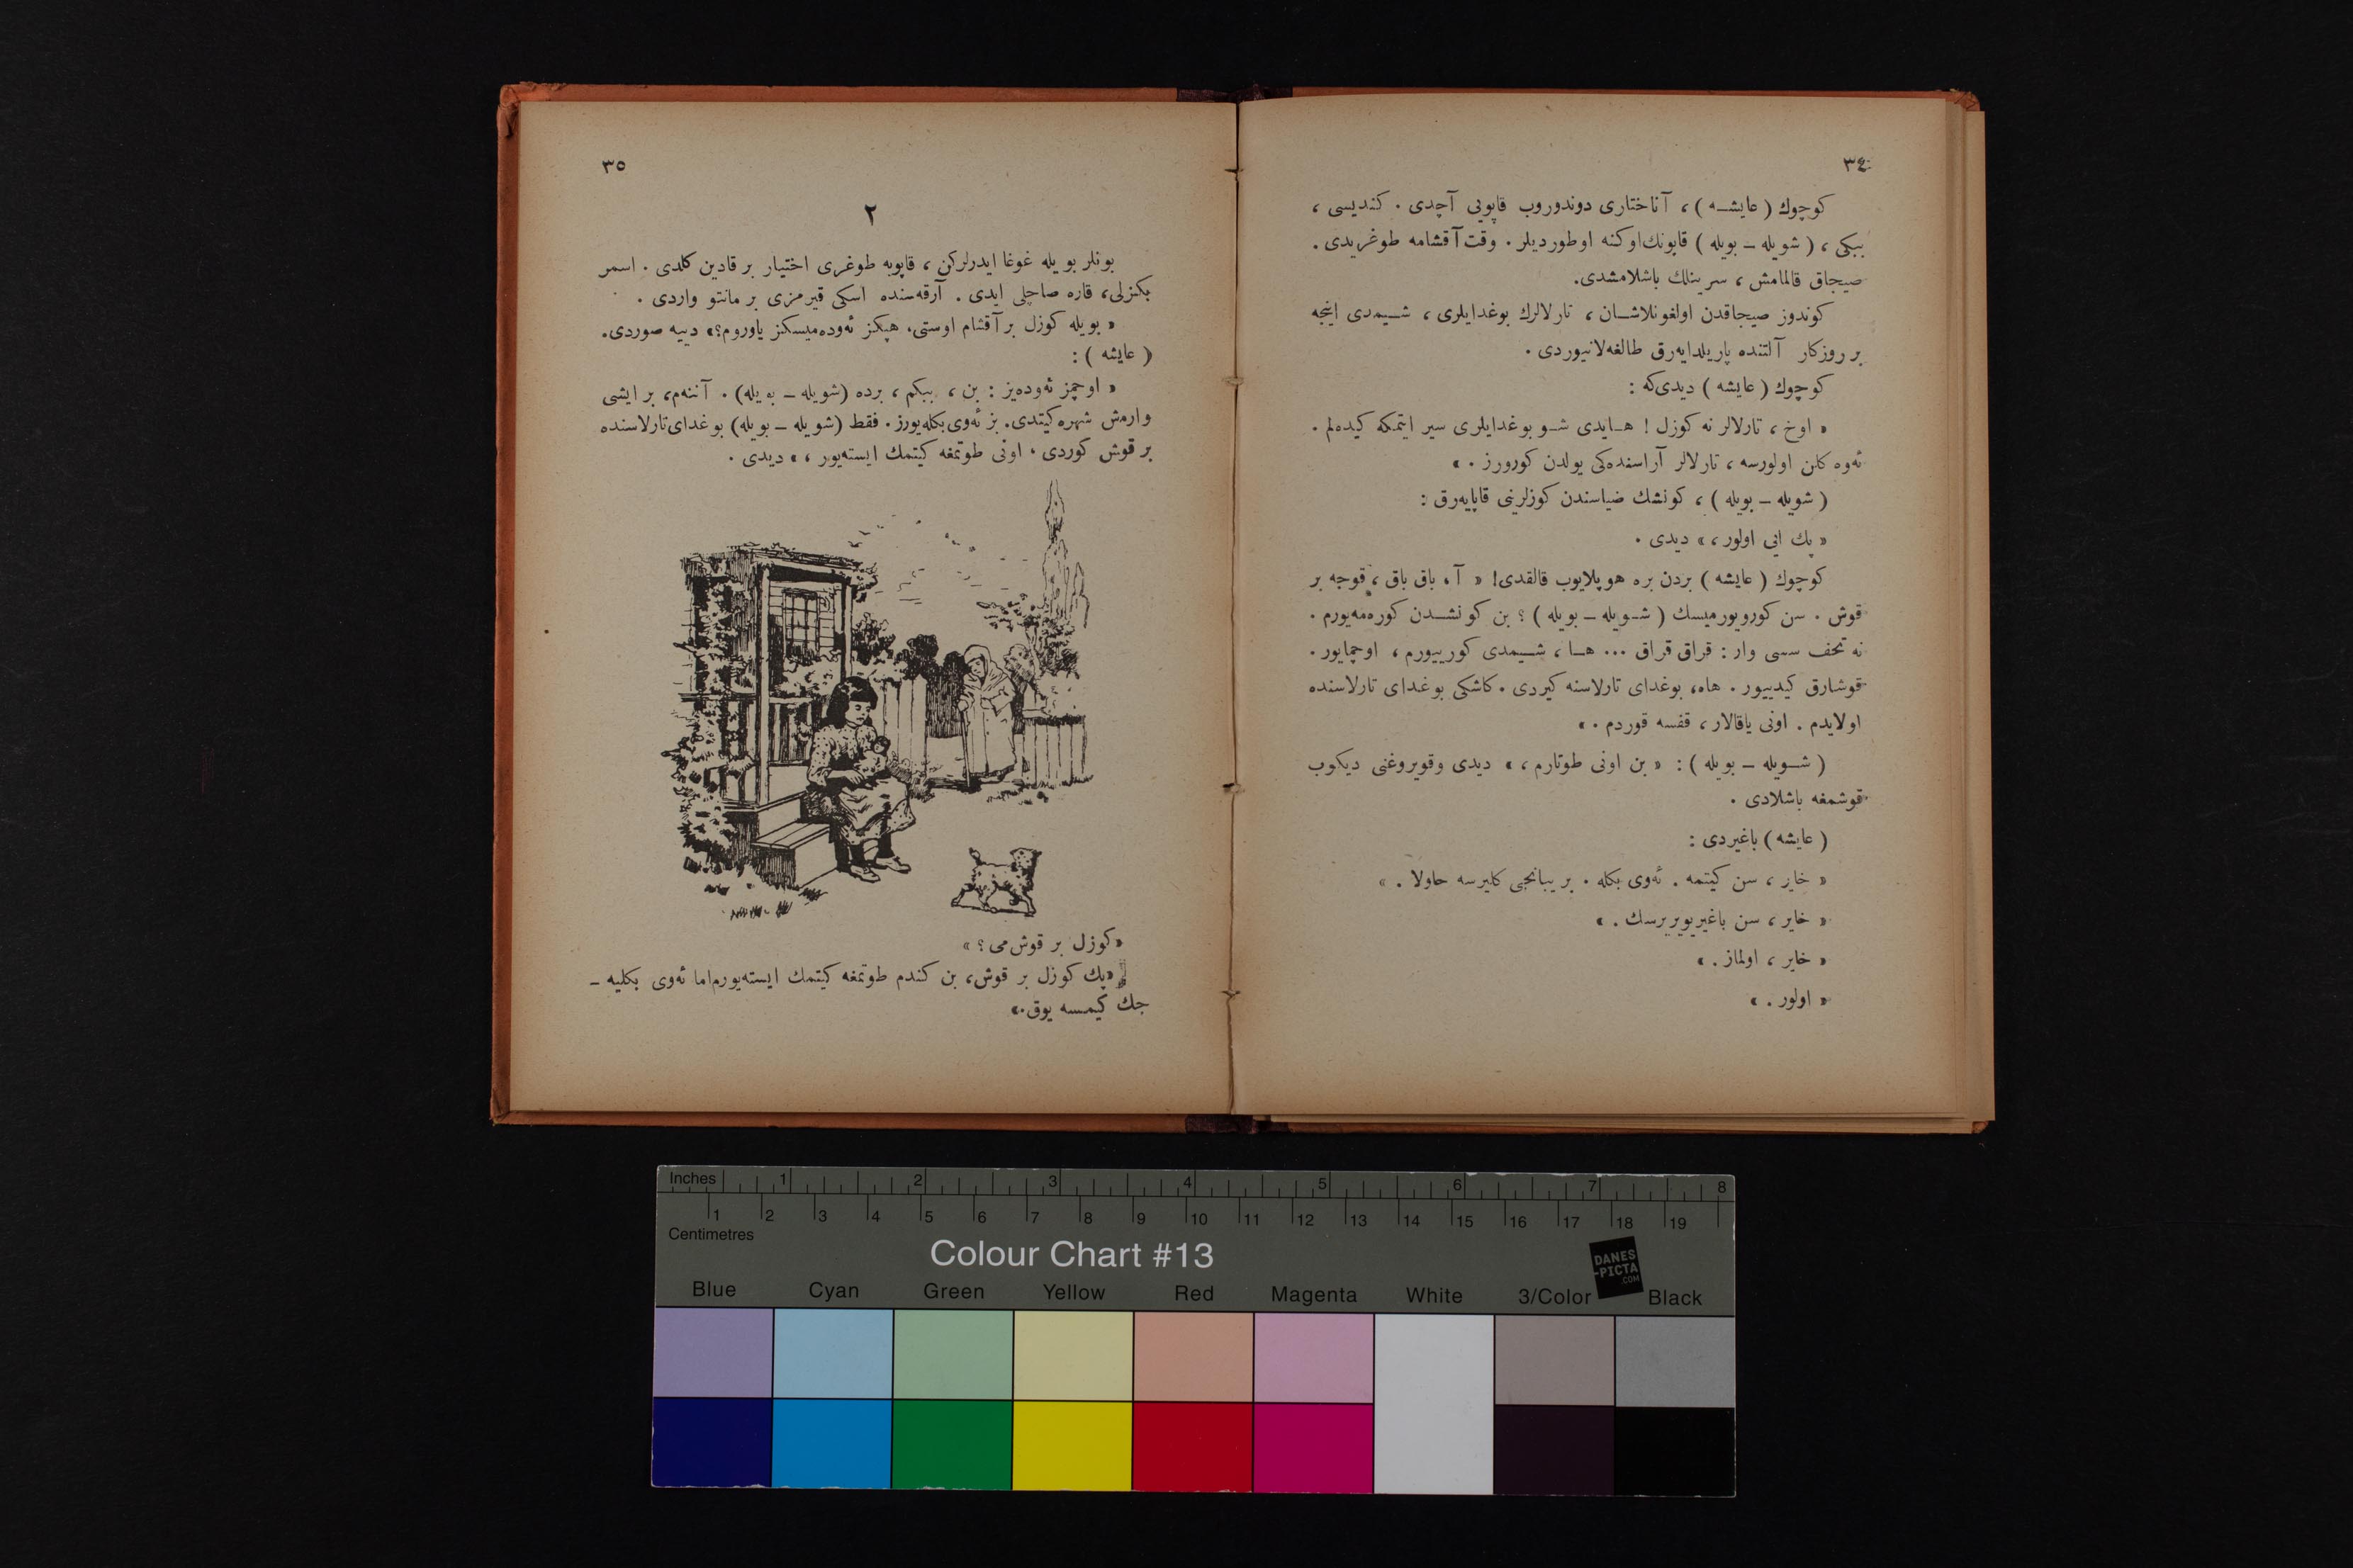 ٣٤
كوچوك ( عايشـه ) ، آناختارى دوندوروب قاپويى آچدى . كنديسى ،
ببكى ، ( شويله ــ بويله ) قاپونك‌اوكنه اوطورديلر . وقت آقشامه طوغريدى .
صيجاق قالمامش ، سرينلك باشلامشدى.
كوندوز صيجاقدن اولغونلاشـان ، تارلالرك بوغدايلرى ، شـيمدى اينجه
بر روزكار آلتنده پاريلدايه‌رق طالغه‌لانيوردى .
كوچوك ( عايشه ) ديدى‌كه :
« اوخ ، تارلالر نه كوزل ! هـايدى شـو بوغدايلرى سير ايتمكه كيده‌لم .
ئه‌وه كلن اولورسه ، تارلالر آراسنده‌كى يولدن كورورز . »
( شويله ــ بويله ) ، كونشك ضياسندن كوزلرينى قاپايه‌رق :
« پك ايى اولور ، » ديدى .
كوچوك ( عايشه ) بردن بره هوپلايوب قالقدى! « آ ، باق باق ، قوجه بر
قوش . سن كورويورميسك ( شـويله ــ بويله ) ؟ بن كونشـدن كوره‌مه‌يورم .
نه تحف سسى وار : قراق قراق ... هـا ، شـيمدى كورييورم ، اوچمايور .
قوشارق كيدييور . هاه، بوغداى تارلاسنه كيردى . كاشكى بوغداى تارلاسنده
اولايدم . اونى ياقالار ، قفسه قوردم . »
( شـويله ــ بويله ) : « بن اونى طوتارم ، » ديدى وقويروغنى ديكوب
قوشمغه باشلادى .
( عايشه ) باغيردى :
« خاير ، سن كيتمه . ئه‌وى بكله . بر يبانجى كليرسه حاولا . »
« خاير ، سن باغيريويريرسك . »
« خاير ، اولماز . »
« اولور . »
٣٥
٢
بونلر بويله غوغا ايدرلركن ، قاپويه طوغرى اختيار بر قادين كلدى . اسمر
بكزلى، قاره صاچلى ايدى . آرقه‌سنده اسكى قيرمزى بر مانتو واردى .
« بويله كوزل بر آقشام اوستى، هپكز ئه‌وده‌ميسكز ياوروم؟» دييه صوردى.
( عايشه ) :
« اوچمز ئه‌وده‌يز : بن ، ببكم ، برده (شويله ــ بويله) . آننه‌م، بر ايشى
وارمش شهره كيتدى. بز ئه‌وى بكله‌يورز. فقط (شويله ــ بويله) بوغداى‌تارلاسنده
بر قوش كوردى ، اونى طوتمغه كيتمك ايسته‌يور ، » ديدى .
«كوزل بر قوش‌مى ؟ »
«پك كوزل بر قوش، بن كندم طوتمغه كيتمك ايسته‌يورم‌اما ئه‌وى بكليه ــ
جك كيمسه يوق.»
Inches 1 2 3 4 5 6 7 8
1 2 3 4 5 6 7 8 9 10 11 12 13 14 15 16 17 18 19
Centimetres
Colour Chart #13
DANES
-PICTA
.COM
Blue Cyan Green Yellow Red Magenta White 3/Color Black